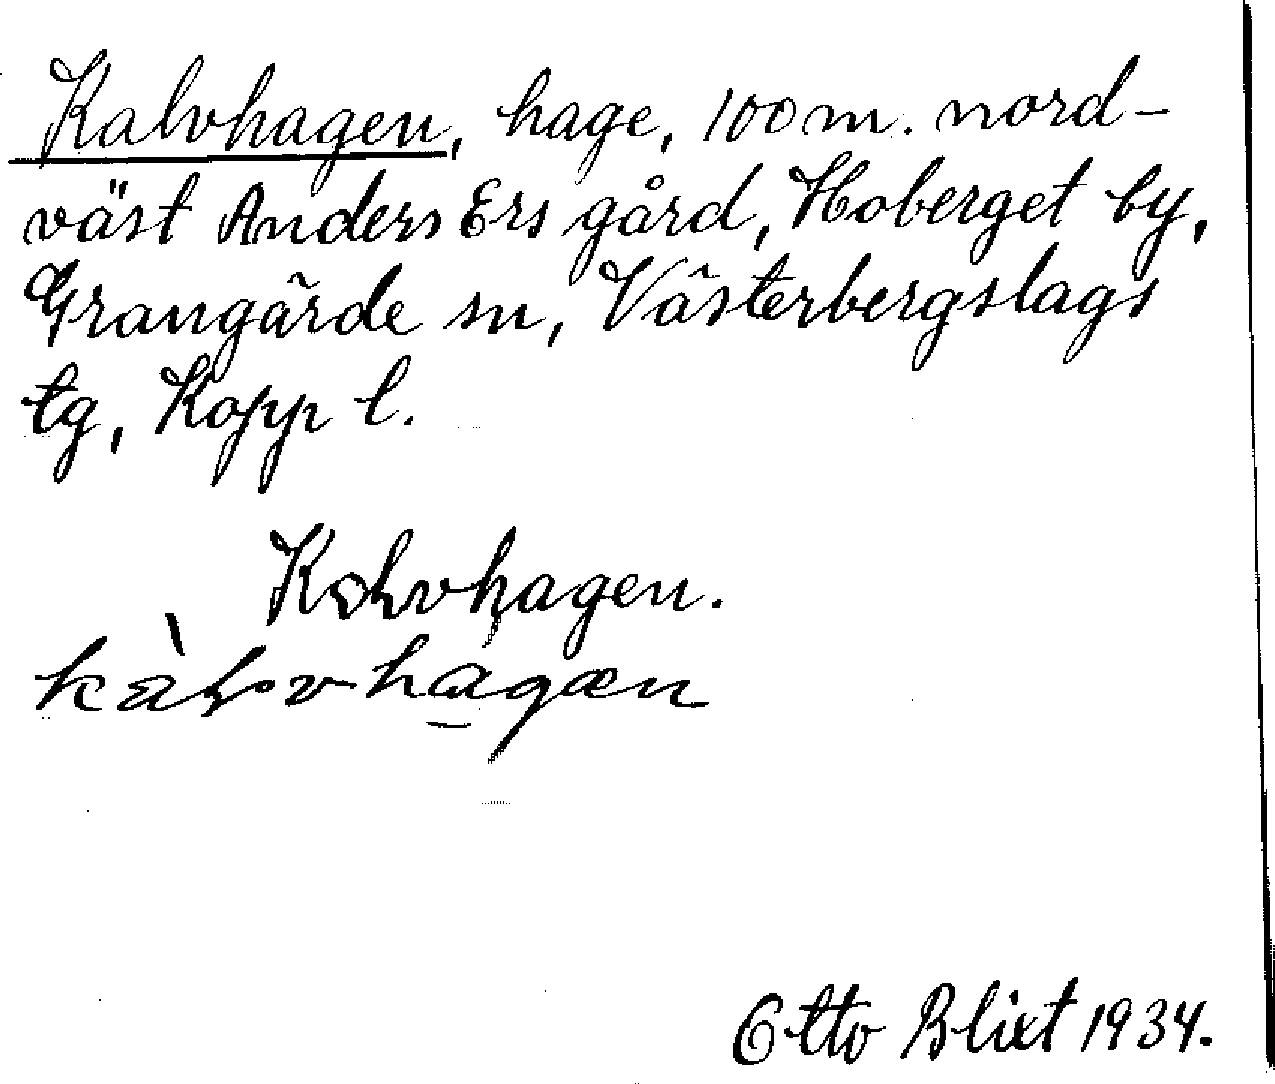 Kalvhagen, hage, 100 m. nord-
väst Anders Ers gård, Hoberget by,
Grangärde sn, Västerbergslags
tg, Kopp l.
Kalvhagen.
kàlvhagæn
Otto Blixt 1934.